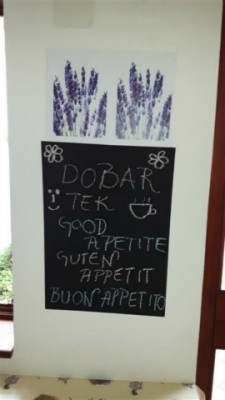 DOBAR
TEK
GOOD
APETITE
GUTEN
APPETIT
BUON APPETITO